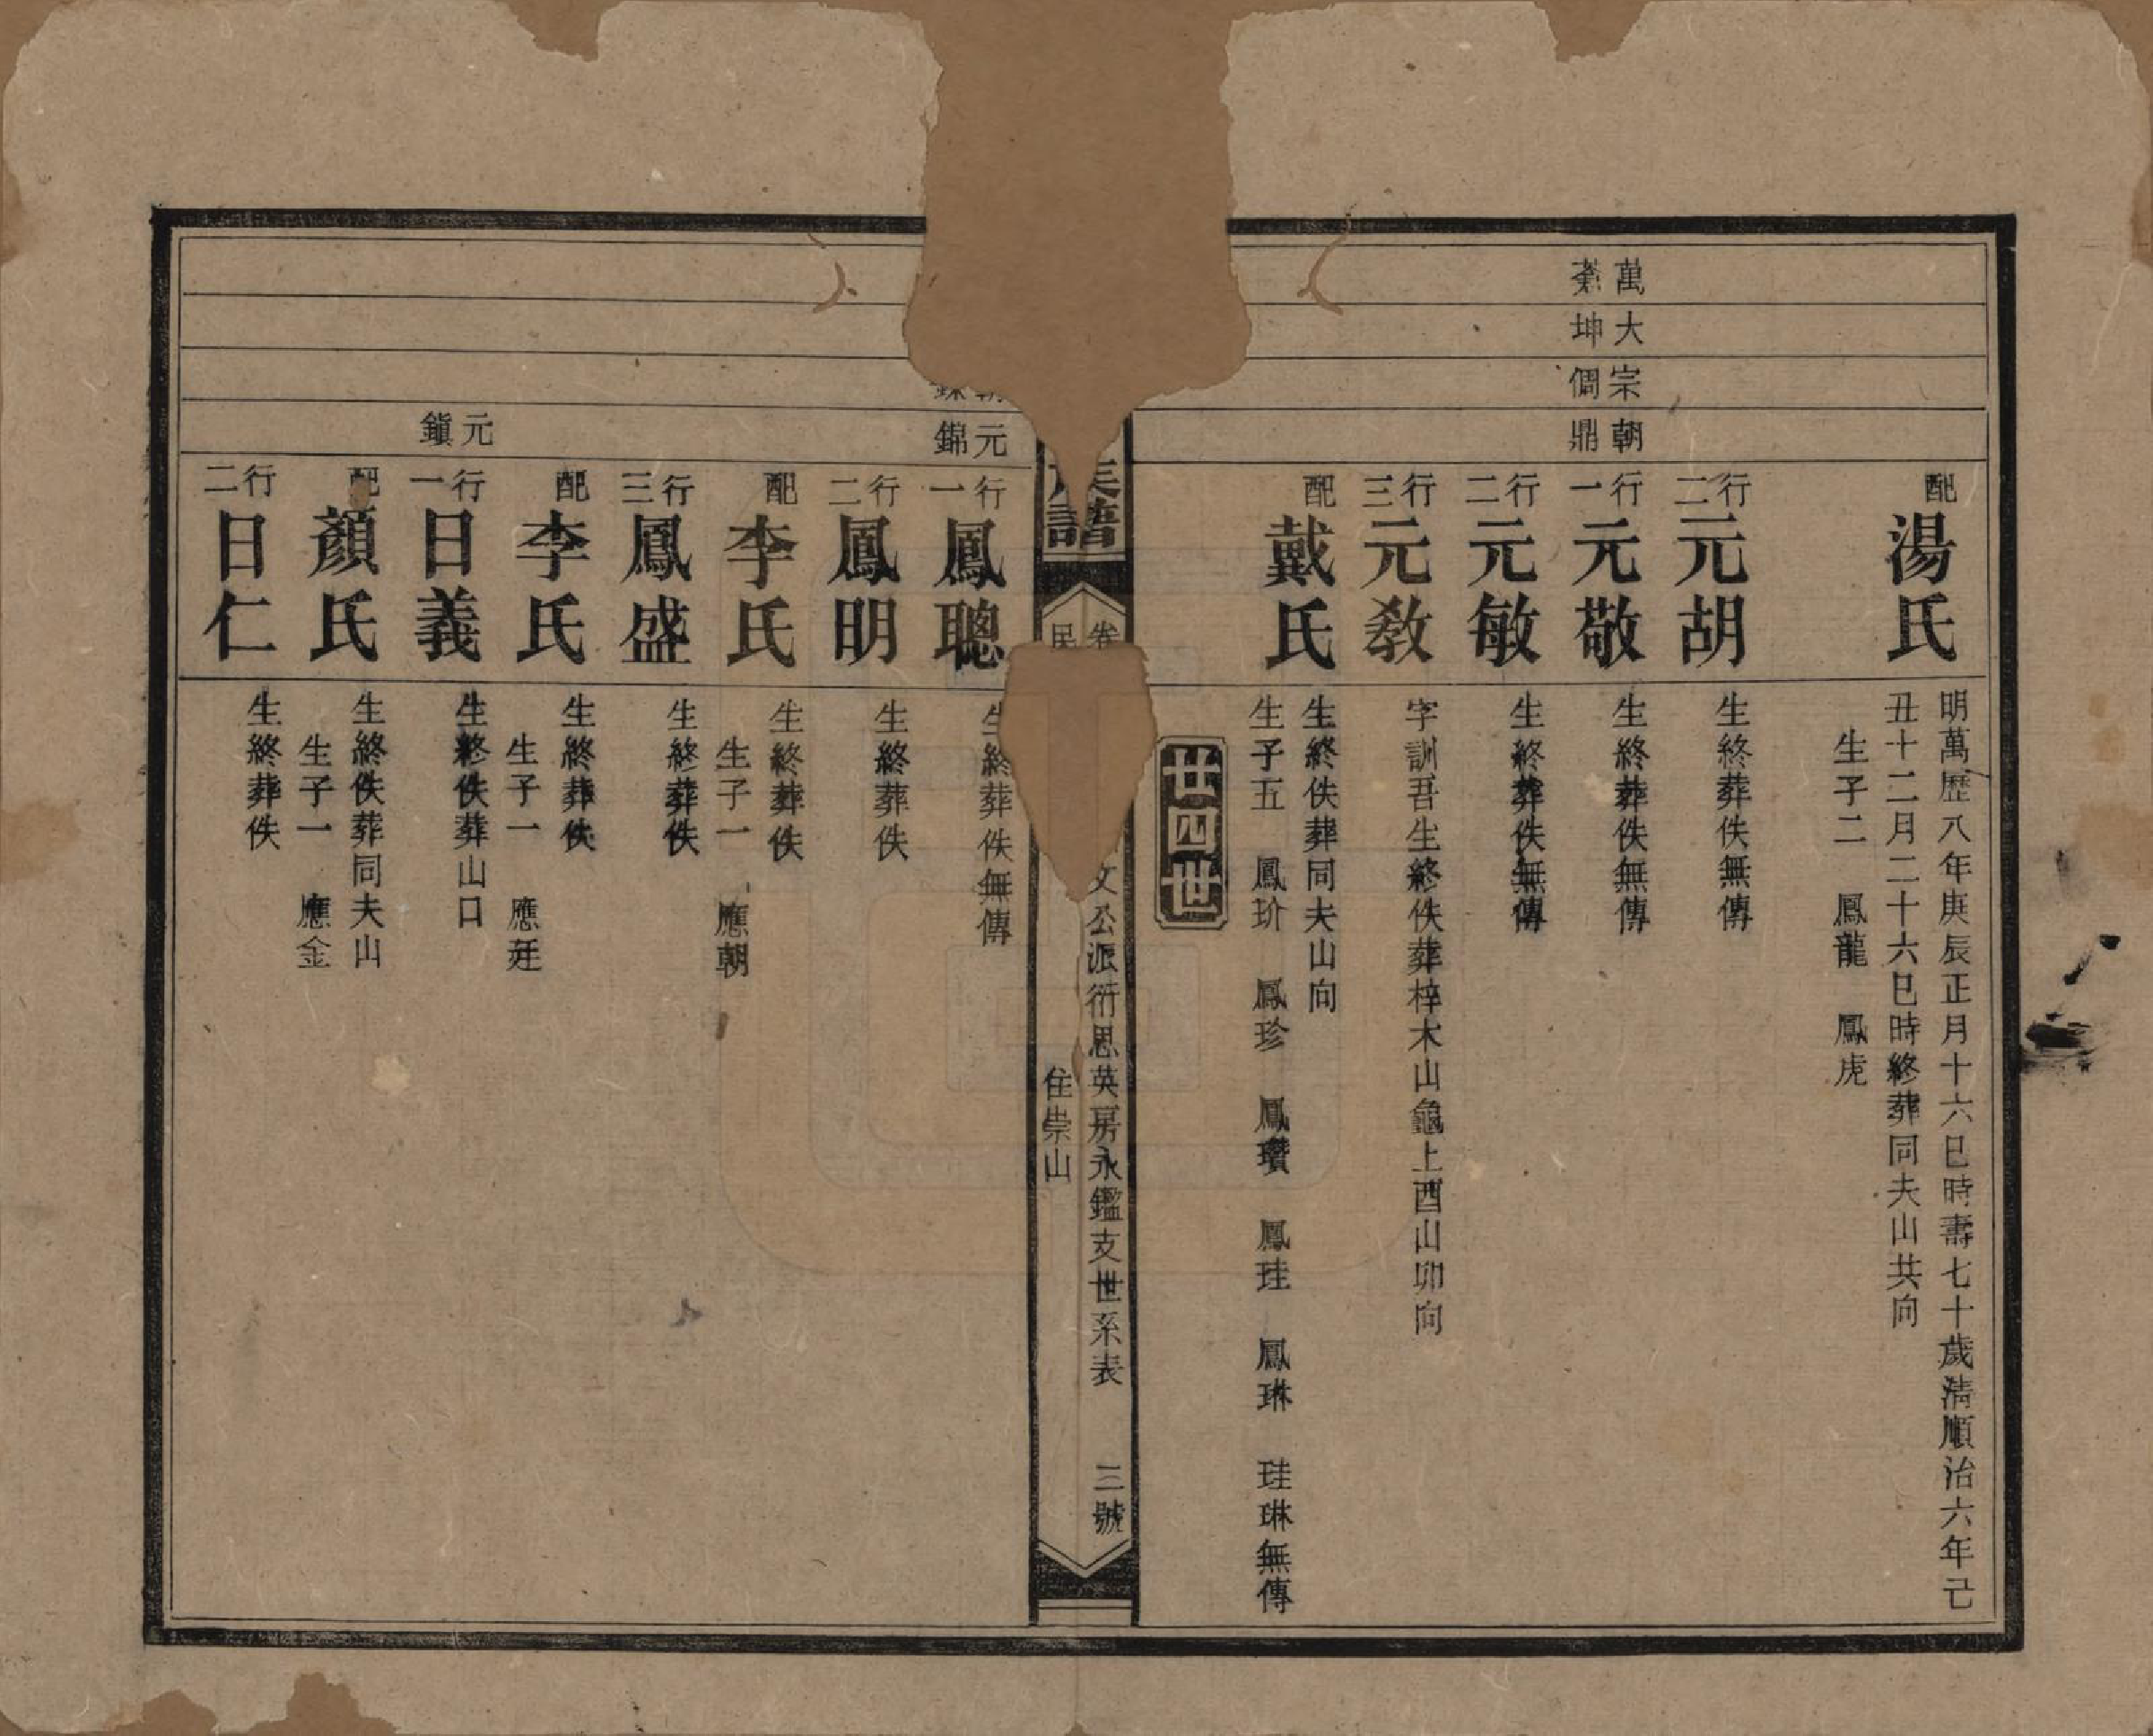 配
湯氏
明萬歷八年庚辰正月十六巳時壽七十歲清順治六年己
丑十二月二十六巳時終葬同夫山共向
生子二 鳳龍 鳳虎
行二
元胡
生終葬佚無傳
萬
大坤
宗倜
朝鼎
行一
元敬
生終葬佚無傳
行二
元敏
生終葬佚無傳
行三
元敎
字訓吾生終佚葬梓木山龜上酉山卯向
配
戴氏
生終佚葬同夫山向
生子五 鳳玠 鳳珍 鳳瓚 鳳珪 鳳琳 珪琳無傳
廿四世
族譜
卷
民
文公派衍思英房永鑑支世系表 三號
住崇山
朝
元錦
行一
鳳聰
生終葬佚無傳
行二
鳳明
生終葬佚
配
李氏
生終葬佚
生子一 應朝
行三
鳳盛
生終葬佚
配
李氏
生終葬佚
生子一 應廷
元鎮
行一
日義
生終佚葬山口
配
顏氏
生終佚葬同夫山
生子一 應金
行二
日仁
生終葬佚